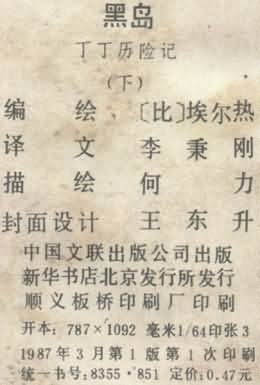 黑岛
丁丁历险记
(下)
编 绘 〔比〕埃尔热
译 文 李秉刚
描 绘 何 力
封面设计 王东升
中国文联出版公司出版
新华书店北京发行所发行
顺义板桥印刷厂印刷
开本：787×1092 毫米1/64印张3
1987年3月第1版第1次印刷
统一书号：8355·851 定价：0.47元